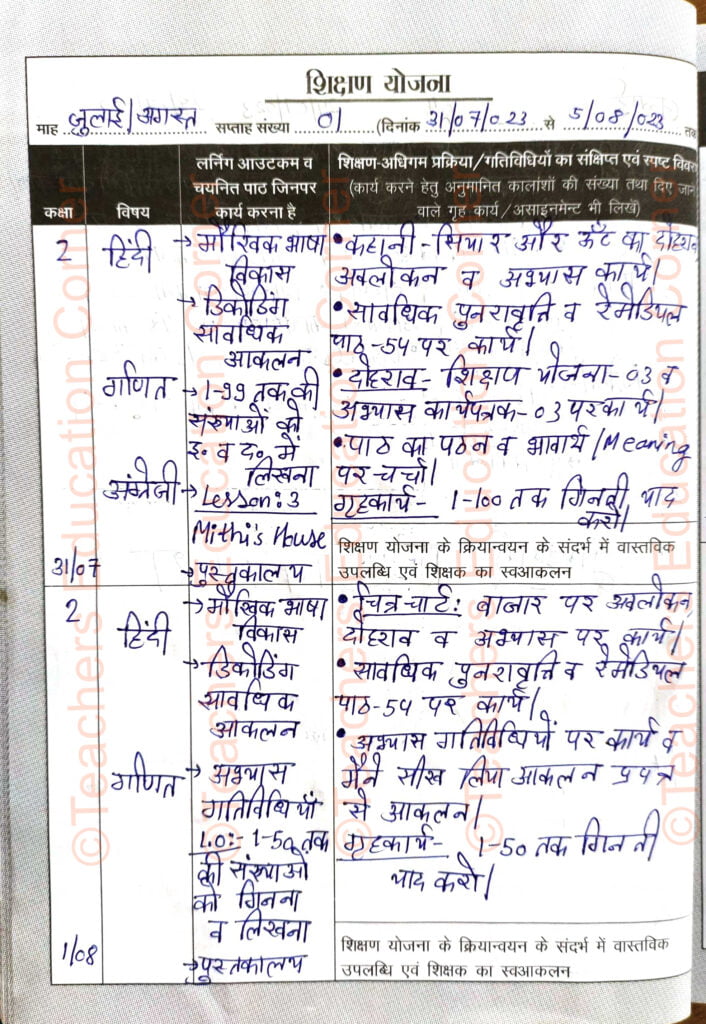 शिक्षण योजना
माह जुलाई/अगस्त सप्ताह संख्या 01 (दिनांक 31/07/023 से 5/08/023 तक
कक्षा विषय
लर्निंग आउटकम व
चयनित पाठ जिनपर
कार्य करना है
शिक्षण-अधिगम प्रक्रिया/गतिविधियों का संक्षिप्त एवं स्पष्ट विवर
(कार्य करने हेतु अनुमानित कालांशों की संख्या तथा दिए जाने
वाले गृह कार्य/असाइनमेंट भी लिखें)
2 हिंदी
→ मौखिक भाषा
विकास
→ डिकोडिंग
सावधिक
आकलन
• कहानी - सियार और ऊँट का दोहरान
अवलोकन व अभ्यास कार्य।
• सावधिक पुनरावृत्ति व रेमेडियल
पाठ-54 पर कार्य।
गणित
→ 1-99 तक की
संख्याओं को
इ. व द. में
लिखना
• दोहराव - शिक्षण योजना-03 व
अभ्यास कार्यपत्रक-03 पर कार्य।
अंग्रेजी
→ Lesson: 3
Mithi's House
→ पुस्तकालय
• पाठ का पठन व भावार्थ/Meaning
पर चर्चा।
गृहकार्य - 1-100 तक गिनती याद
करो।
31/07
शिक्षण योजना के क्रियान्वयन के संदर्भ में वास्तविक
उपलब्धि एवं शिक्षक का स्वआकलन
2 हिंदी
→ मौखिक भाषा
विकास
→ डिकोडिंग
सावधिक
आकलन
• चित्र चार्ट: बाजार पर अवलोकन,
दोहराव व अभ्यास पर कार्य।
• सावधिक पुनरावृत्ति व रेमेडियल
पाठ-54 पर कार्य।
गणित
→ अभ्यास
गतिविधियाँ
L.O:- 1-50 तक
की संख्याओं
को गिनना
व लिखना
→ पुस्तकालय
• अभ्यास गतिविधियों पर कार्य व
मैंने सीख लिया आकलन प्रपत्र
से आकलन।
गृहकार्य - 1-50 तक गिनती
याद करो।
1/08
शिक्षण योजना के क्रियान्वयन के संदर्भ में वास्तविक
उपलब्धि एवं शिक्षक का स्वआकलन
©Teachers Education Corner
©Teachers Education Corner
©Teachers Education Corner
©Teachers Education Corner
©Teachers Education Corner